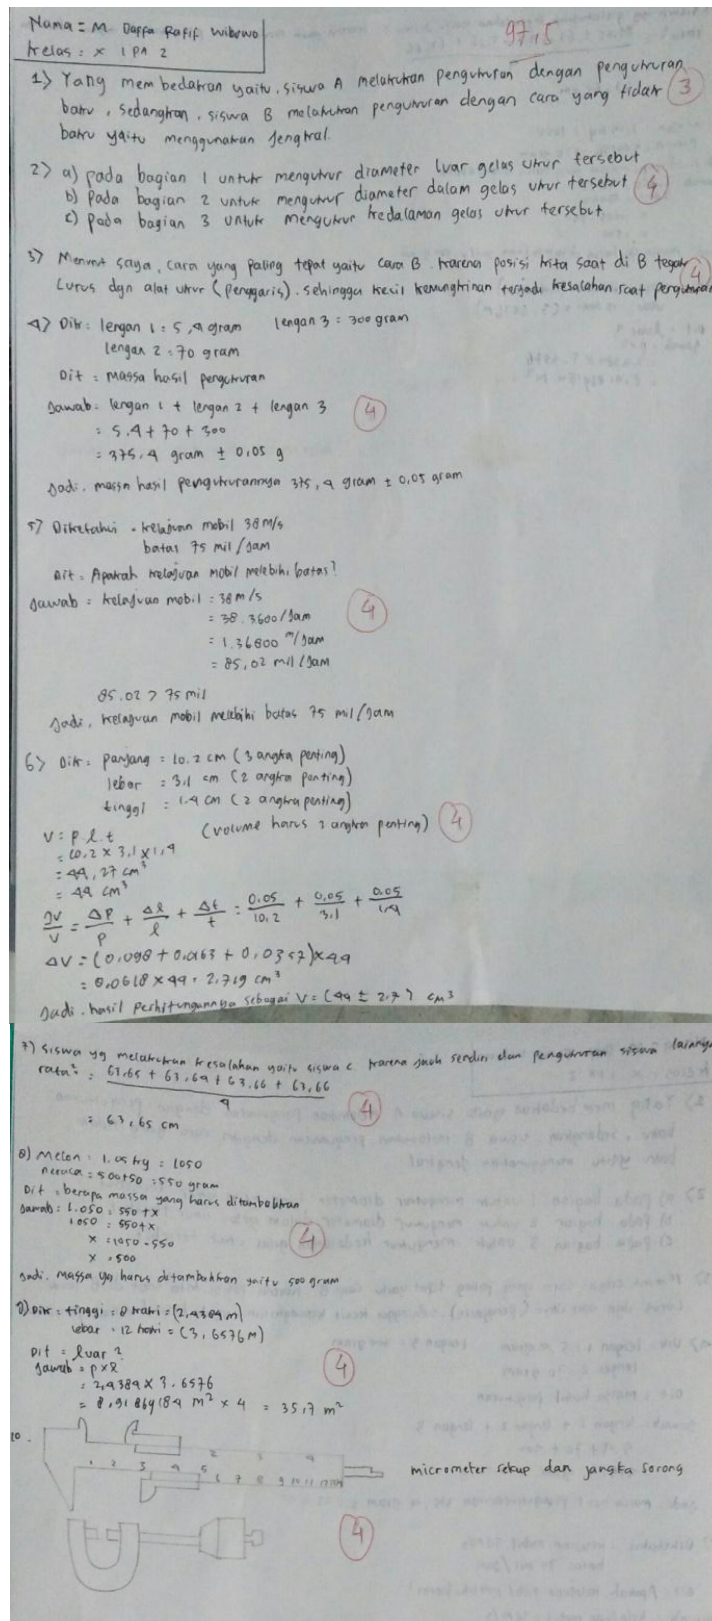 Nama = M Daffa Rafif Wibowo
kelas = X IPA 2
97,5
1) Yang membedakan yaitu, siswa A melakukan pengukuran dengan pengukuran
baku, sedangkan, siswa B melakukan pengukuran dengan cara yang tidak
baku yaitu menggunakan jengkal.
3
2) a) pada bagian 1 untuk mengukur diameter luar gelas ukur tersebut
b) pada bagian 2 untuk mengukur diameter dalam gelas ukur tersebut
c) pada bagian 3 untuk mengukur kedalaman gelas ukur tersebut.
4
3) Menurut saya, cara yang paling tepat yaitu cara B. karena posisi kita saat di B tegak
Lurus dgn alat ukur (penggaris). sehingga kecil kemungkinan terjadi kesalahan saat pengukuran
4
4) Dik = lengan 1 = 5,4 gram lengan 3 = 300 gram
lengan 2 = 70 gram
Dit = massa hasil pengukuran
Jawab = lengan 1 + lengan 2 + lengan 3
= 5.4 + 70 + 300
= 375,4 gram ± 0,05 g
4
Jadi. massa hasil pengukurannya 375,4 gram ± 0,05 gram
5) Diketahui = kelajuan mobil 38 m/s
batas 75 mil/jam
Dit = Apakah kelajuan mobil melebihi batas?
Jawab = kelajuan mobil = 38 m/s
= 38.3600/jam
= 1.36800 m/jam
= 85,02 mil/jam
4
85.02 > 75 mil
Jadi, kelajuan mobil melebihi batas 75 mil/jam
6) Dik = panjang = 10.2 cm (3 angka penting)
lebar = 3,1 cm (2 angka penting)
tinggi = 1.4 cm (2 angka penting)
V = p.l.t (volume harus 2 angka penting)
= 10,2 x 3,1 x 1,4
= 44,27 cm³
= 44 cm³
4
ΔV/V = ΔP/P + Δl/l + Δt/t = 0.05/10,2 + 0,05/3,1 + 0,05/1,4
ΔV = (0,098 + 0,0163 + 0,0357) x 44
= 0,0618 x 44 = 2,719 cm³
Jadi. hasil perhitungannya sebagai V = (44 ± 2,7) cm³
7) Siswa yg melakukan kesalahan yaitu siswa C karena jauh sendiri dan pengukuran siswa lainnya
rata² = 63,65 + 63,64 + 63,66 + 63,66
4
= 63,65 cm
4
8) Melon = 1.05 kg = 1050
neraca = 500+50 = 550 gram
Dit = berapa massa yang harus ditambahkan
Jawab = 1.050 = 550 + x
1.050 = 550 + x
x = 1050 - 550
x = 500
4
Jadi. massa yg harus ditambahkan yaitu 500 gram
9) Dik = tinggi = 8 kaki = (2,4384 m)
lebar = 12 kaki = (3,6576 m)
Dit = luar?
Jawab = p x l
= 2,4384 x 3.6576
= 8,91869184 m² x 4 = 35,7 m²
4
10.
2 3 4
1 2 3 4 5 6 7 8 9 10 11 12
micrometer sekup dan jangka sorong
4